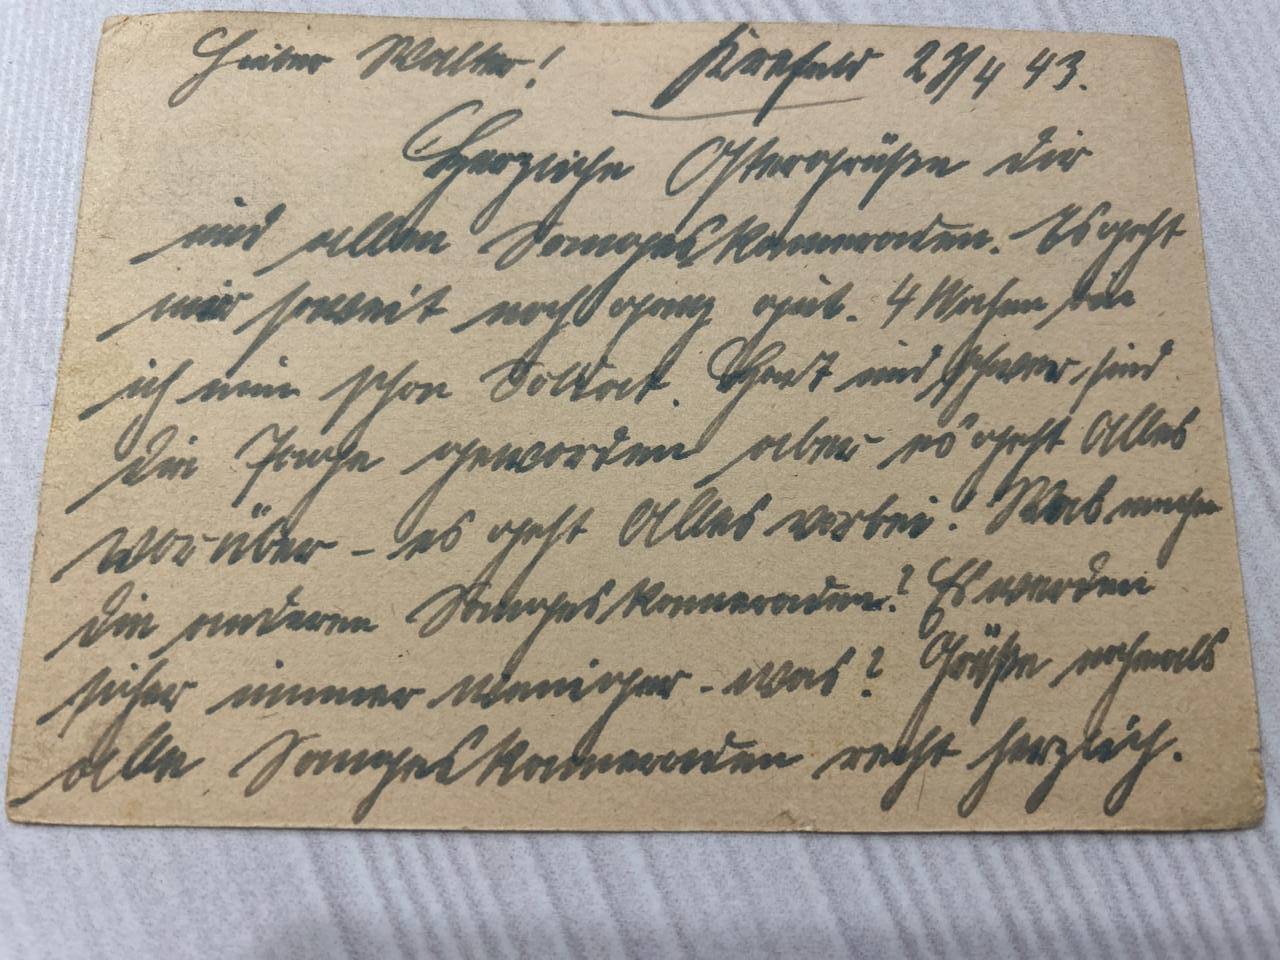 Lieber Walter! Krefeld 23/4 43.
Herzliche Ostergrüße dir
und allen Sangeskameraden. Es geht
mir soweit noch ganz gut. 4 Wochen bin
ich nun schon Soldat. Hart und schwer, sind
die Tage geworden aber es geht Alles
vorüber - es geht Alles vorbei. Was machen
die anderen Sangeskameraden? Es werden
sicher immer weniger - was? Grüße nochmals
alle Sangeskameraden recht herzlich.